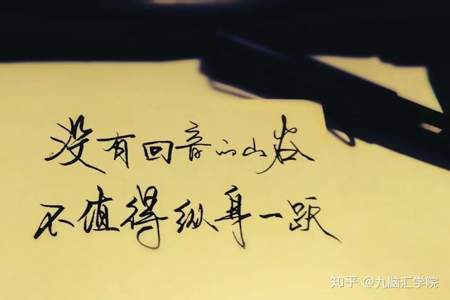 没有回音的山谷
不值得纵身一跃
知乎 @九脑汇学院